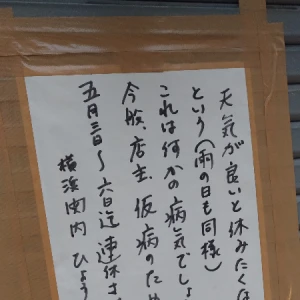 天気が良いと休みたくな
という(雨の日も同様)
これは何かの病気でしょ
今般、店主、仮病のため
五月三日〜六日迄連休さ
横浜関内ひょう